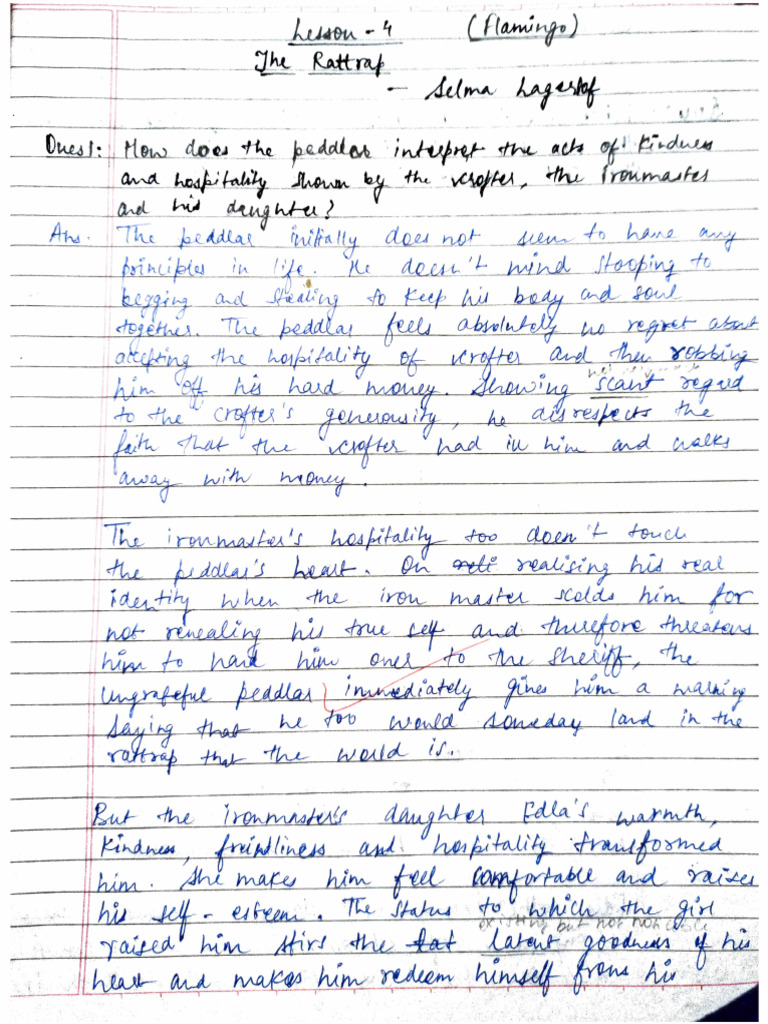 Lesson - 4 (Flamingo)
The Rattrap
- Selma Lagerlof
Ques1: How does the peddlar interpret the acts of kindness
and hospitality shown by the crofter, the ironmaster
and his daughter?
Ans. The peddlar initially does not seem to have any
principles in life. He doesn't mind stooping to
begging and stealing to keep his body and soul
together. The peddlar feels absolutely no regret about
accepting the hospitality of crofter and then robbing
him off his hard money. Showing scant regard
to the crofter's generousity, he disrespects the
faith that the crofter had in him and walks
away with money.
The ironmaster's hospitality too doesn't touch
the peddlar's heart. On realising his real
identity when the iron master scolds him for
not revealing his true self and therefore threatens
him to hand him over to the sheriff, the
ungrateful peddlar immediately gives him a warning
saying that he too would someday land in the
rattrap that the world is.
But the ironmaster's daughter Edla's warmth,
kindness, freindliness and hospitality transformed
him. She makes him feel comfortable and raises
his self-esteem. The status to which the girl
existing but not noticable
raised him stirs the latent goodness of his
heart and makes him redeem himself from his